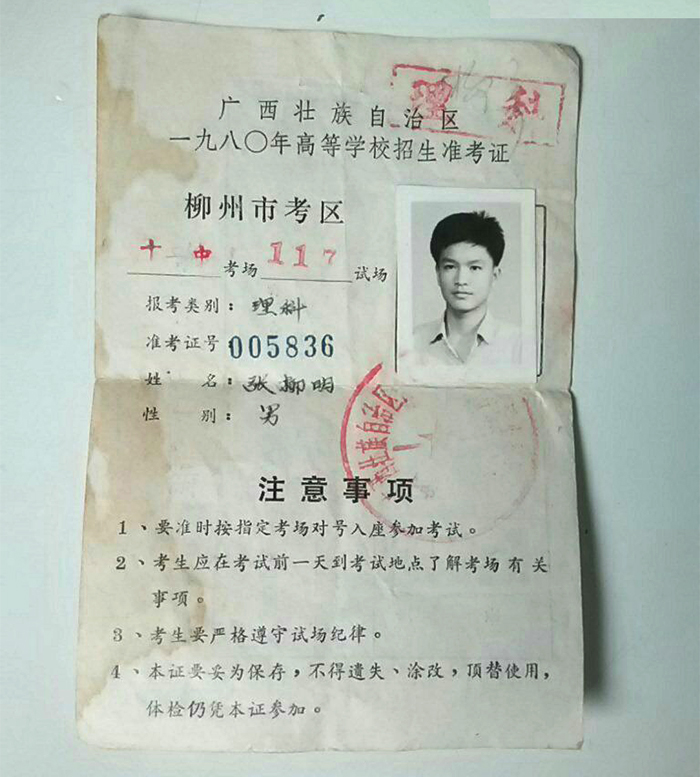 理科
广西壮族自治区
一九八〇年高等学校招生准考证
柳州市考区
十中 考场 117 试场
报考类别：理科
准考证号：005836
姓 名：张柳明
性 别：男
壮族自治区
注意事项
1、要准时按指定考场对号入座参加考试。
2、考生应在考试前一天到考试地点了解考场有关
事项。
3、考生要严格遵守试场纪律。
4、本证要妥为保存，不得遗失、涂改，顶替使用，
体检仍凭本证参加。